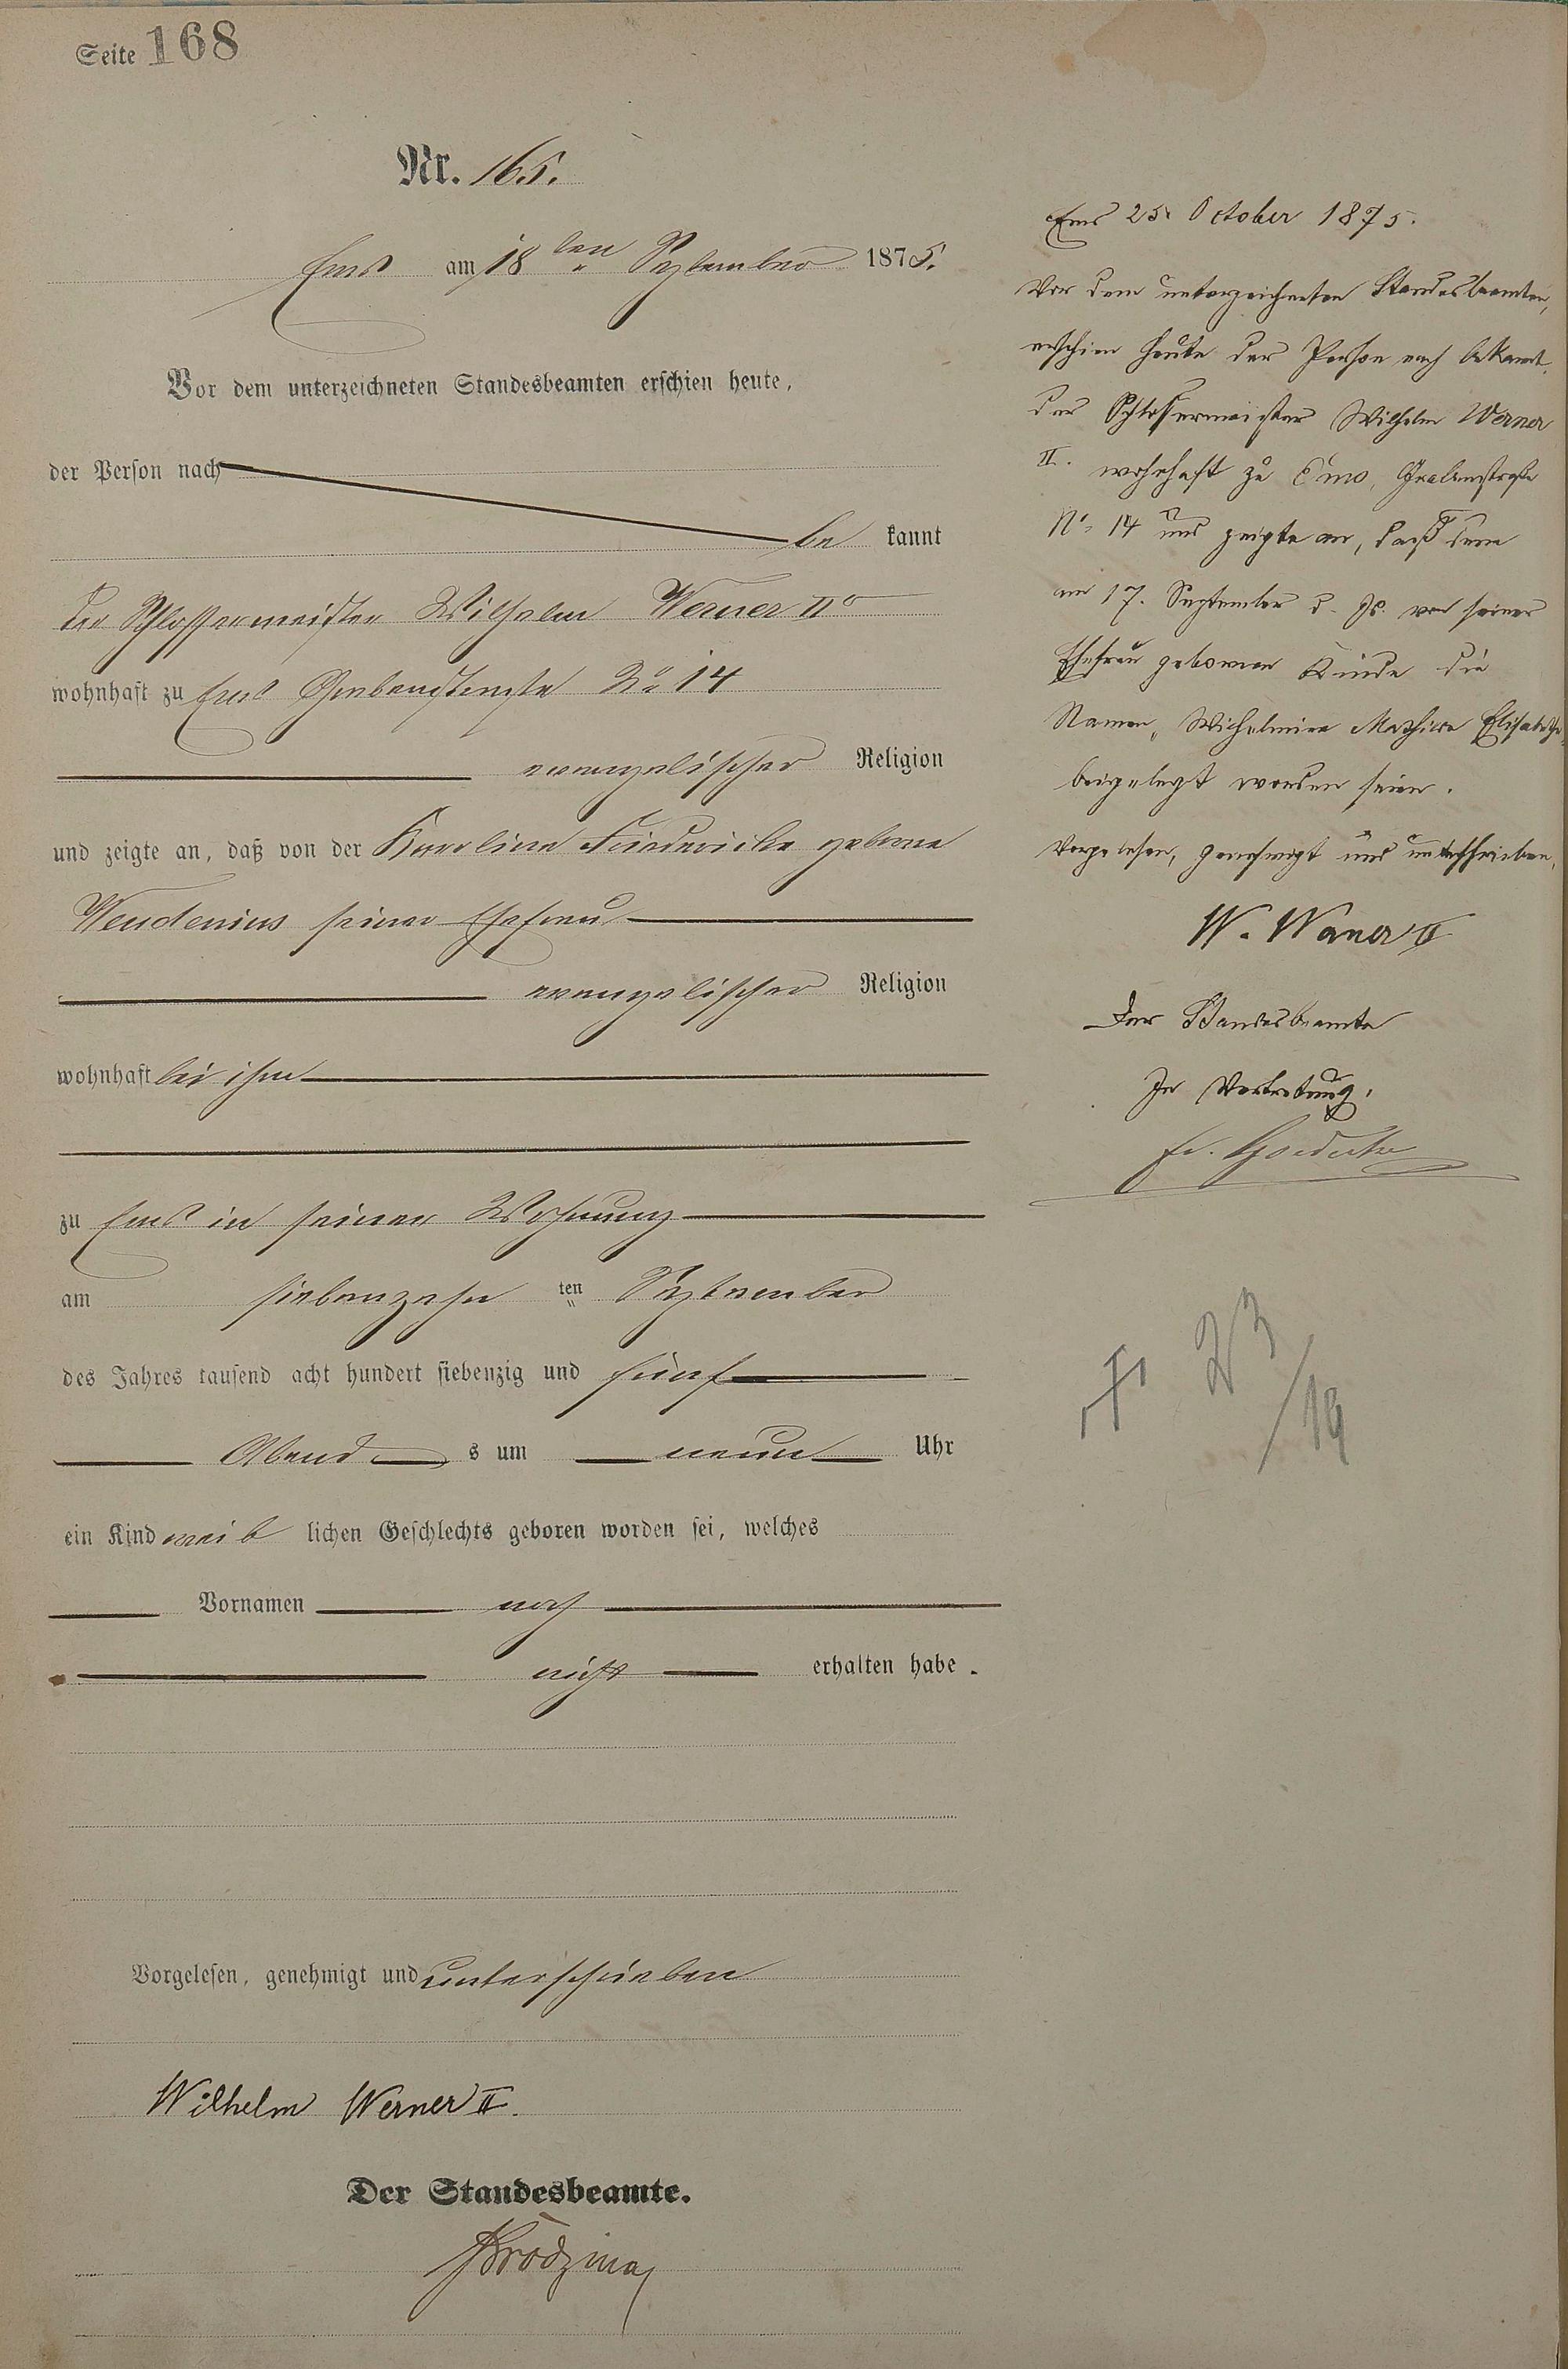 Seite 168
Nr. 165.
Ems am 18ten September 1875.
Vor dem unterzeichneten Standesbeamten erschien heute,
der Person nach
be kannt
der Schlossermeister Wilhelm Werner IIr
wohnhaft zu Ems Grabenstraße No 14
evangelischer Religion
und zeigte an, daß von der Karoline Friedericke geborne
Wendenius seiner Ehefrau
evangelischer Religion
wohnhaft bei ihm
zu Ems in seiner Wohnung
am siebenzehn ten September
des Jahres tausend acht hundert siebenzig und fünf
Abend s um neun Uhr
ein Kind weib lichen Geschlechts geboren worden sei, welches
Vornamen noch
nicht erhalten habe.
Vorgelesen, genehmigt und unterschrieben
Wilhelm Werner II.
Der Standesbeamte.
Ems 25. October 1875.
Vor dem unterzeichneten Standesbeamten,
erschien heute der Person nach bekannt,
der Schlossermeister Wilhelm Werner
II. wohnhaft zu Ems, Grabenstraße
No 14 und zeigte an, daß dem
am 17. September d. Js. von seiner
Ehefrau geborenen Kinde die
Namen "Wilhelmine Mathilde Elisabethe"
beigelegt worden seien.
Vorgelesen, genehmigt und unterschrieben,
W. Werner II
Der Standesbeamte
In Vertretung,
23/19